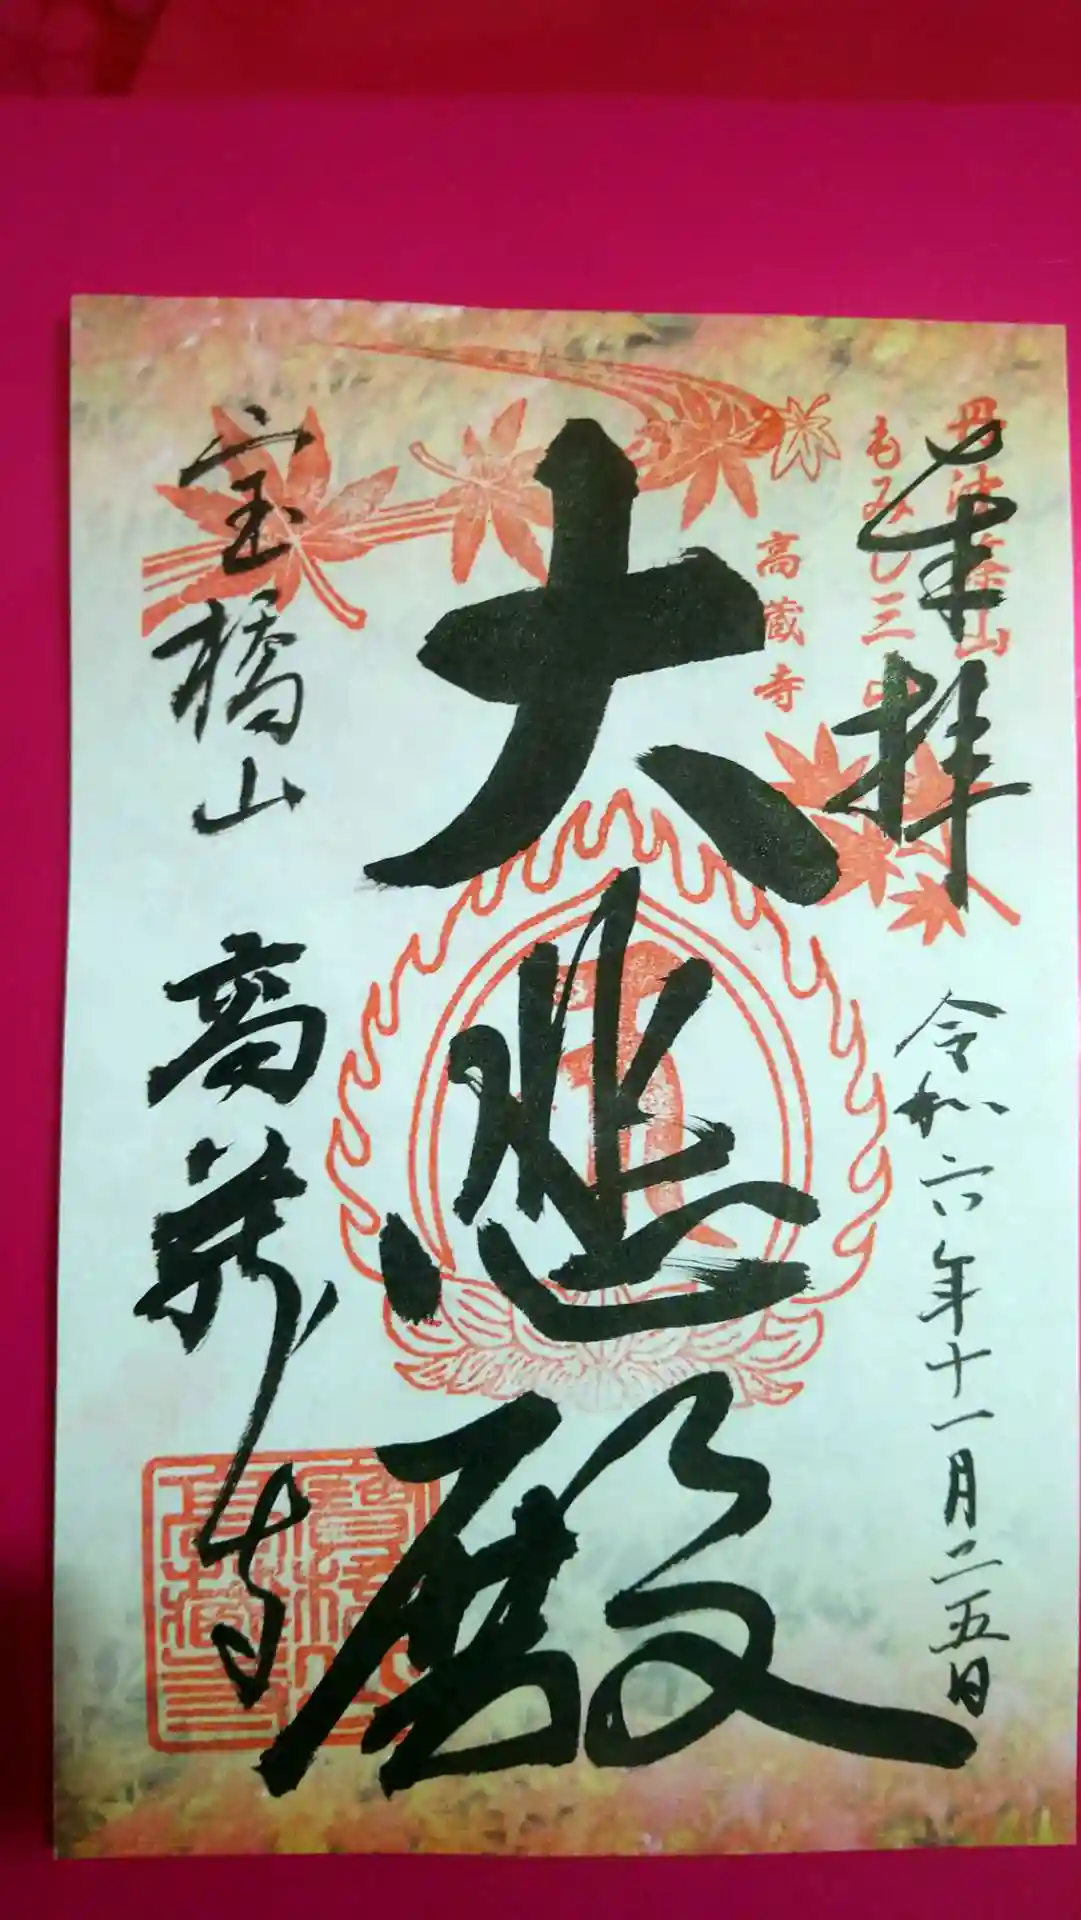 奉拝
令和六年十一月二五日
丹波篠山
もみじ三山
高蔵寺
大悲殿
宝橋山
高蔵寺